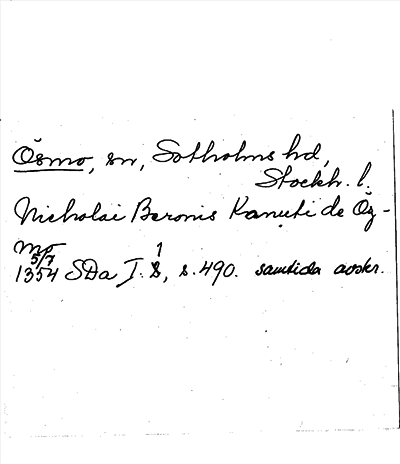 Ösmo, sn, Sotholms hd,
Stockh. l.
Nicholai Beronis Kanuti de Øz-
mo
5/7
1354 SDa I. 1, s. 490. samtida avskr.